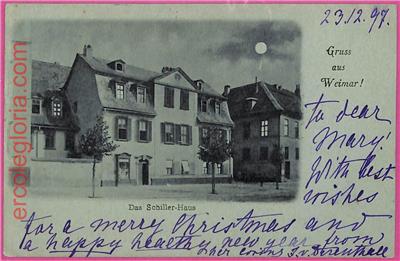 23.12.97.
Gruss
aus
Weimar!
to dear
Mary!
With best
wishes
Das Schiller-Haus
for a merry Christmas and
a happy healthy new year from
her
ercolegloria.com